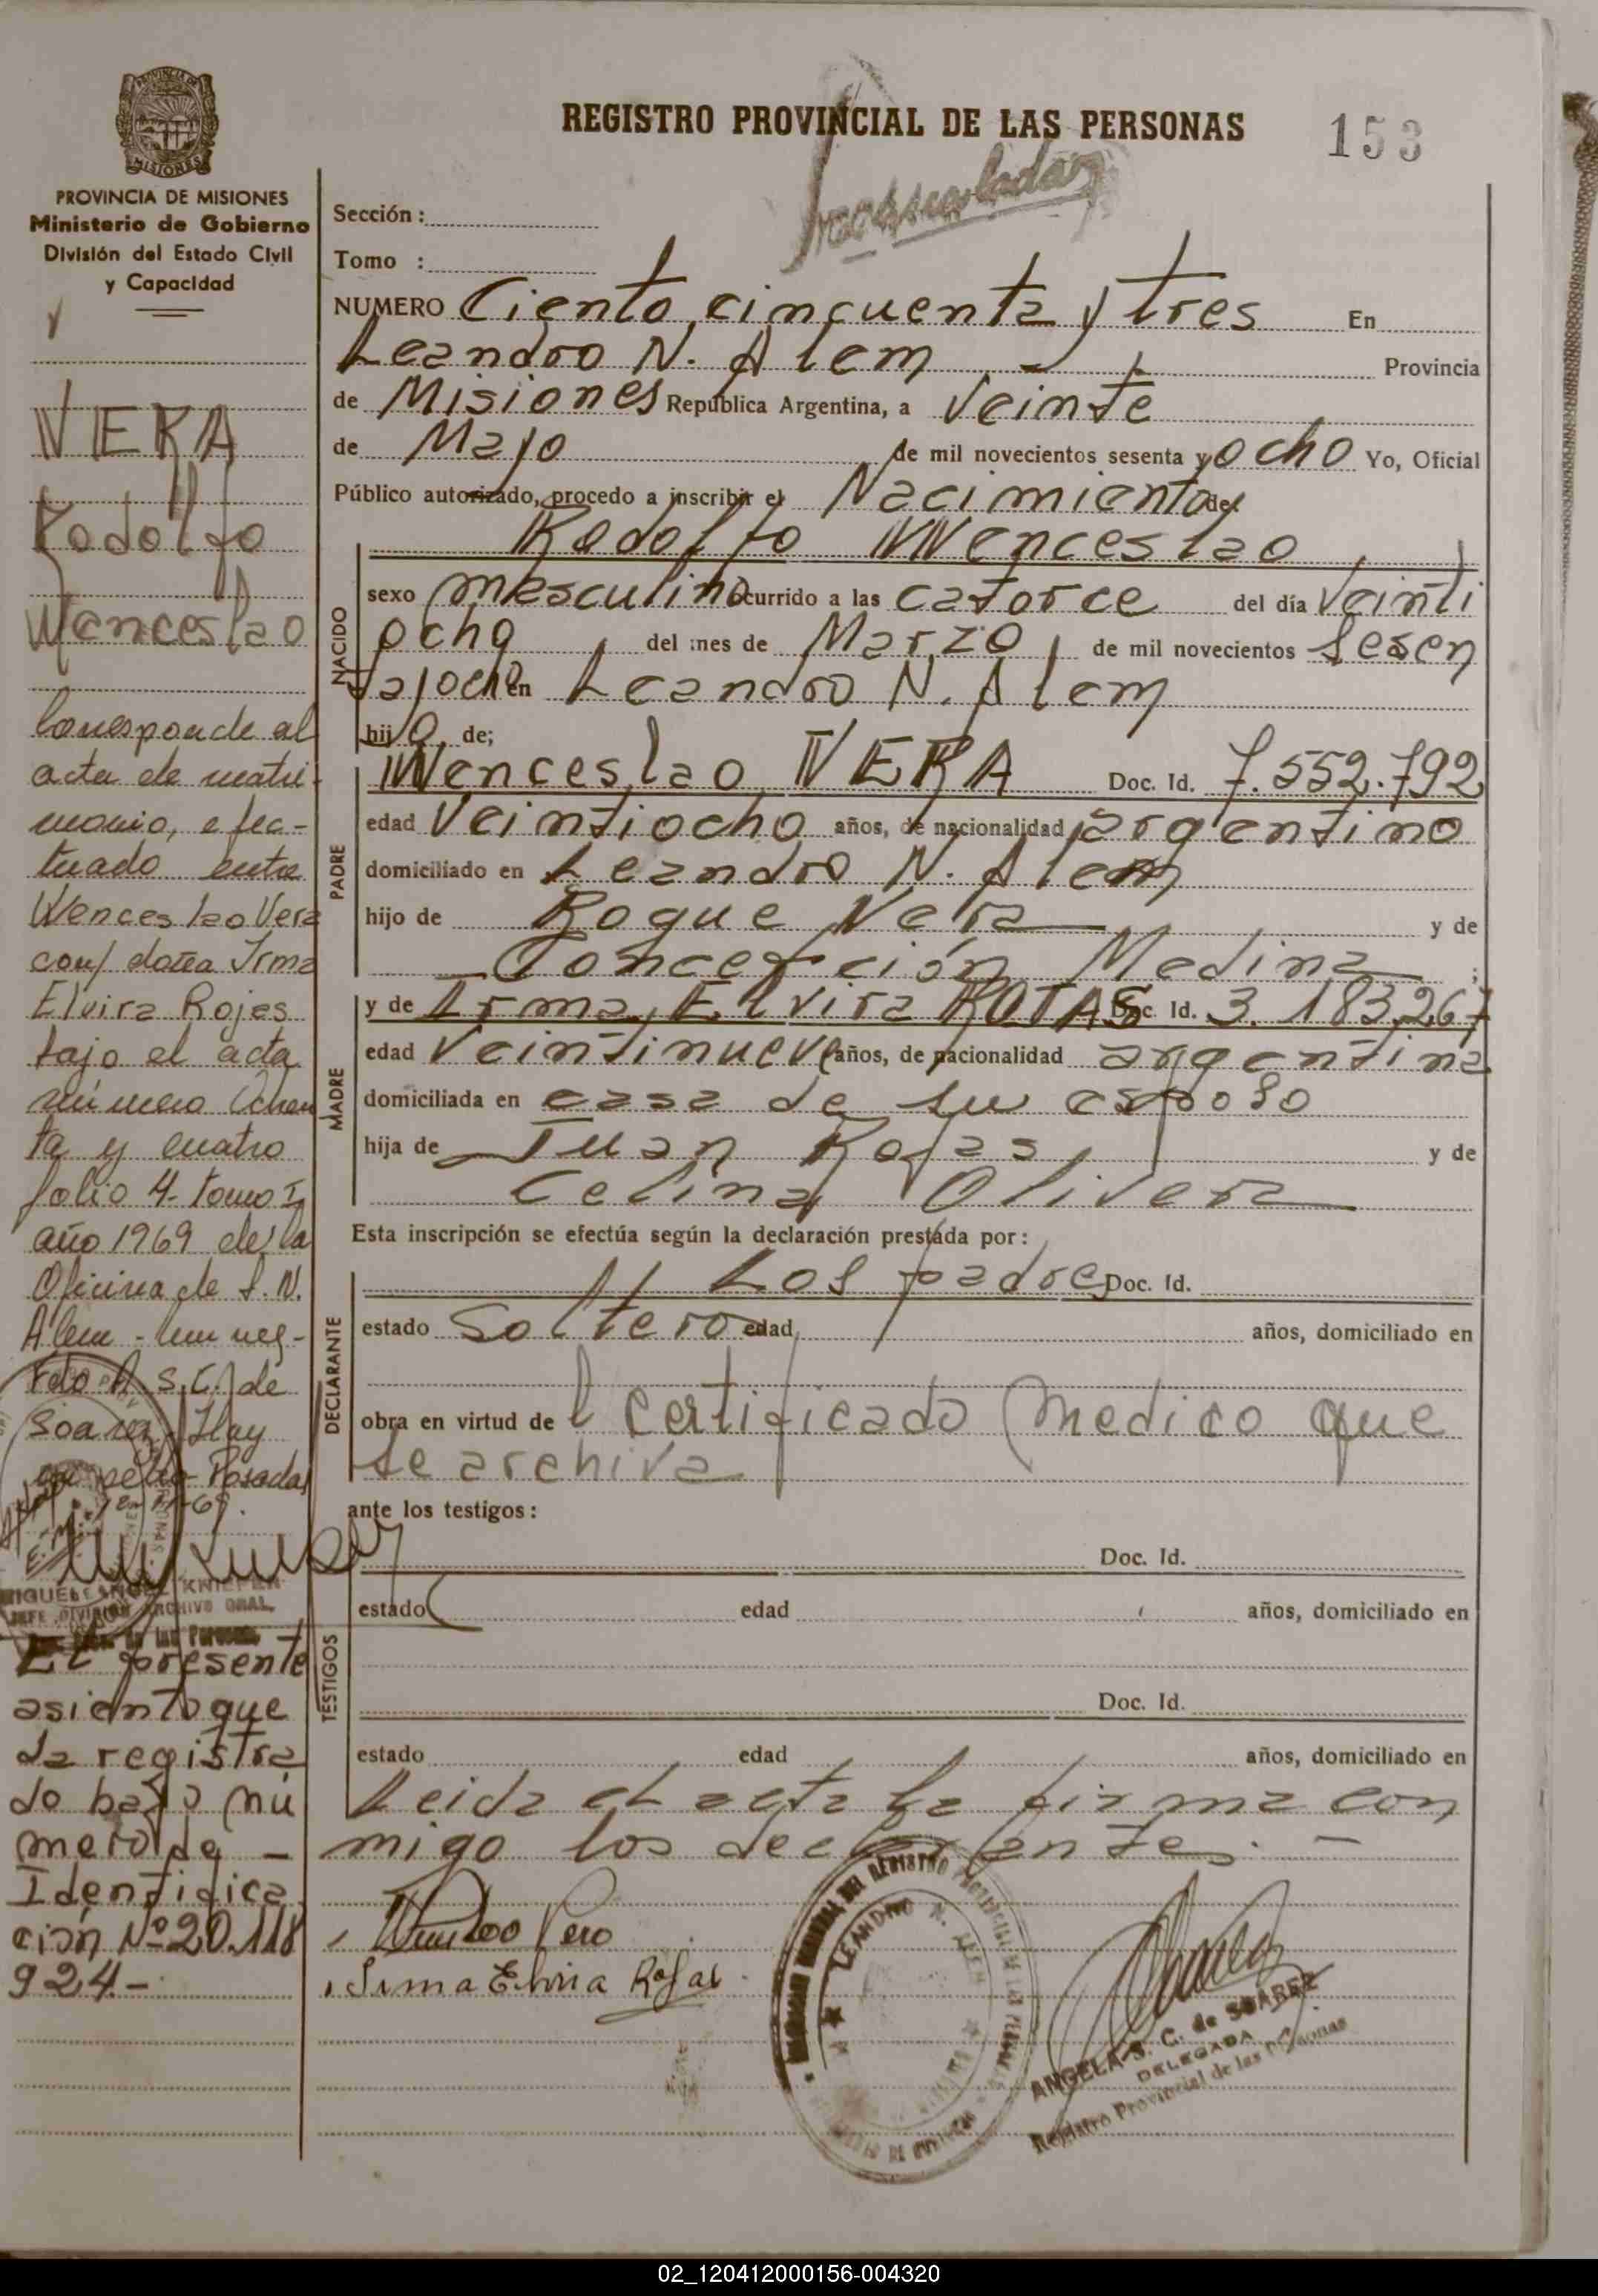 REGISTRO PROVINCIAL DE LAS PERSONAS
153
PROVINCIA DE MISIONES
Ministerio de Gobierno
División del Estado Civil
y Capacidad
VERA
Rodolfo
Wenceslao
Corresponde al
acta de matri-
monio, efec-
tuado entre
Wenceslao Vera
con doña Irma
Elvira Rojas
bajo el acta
número Ochen
ta y cuatro
folio 4- tomo I
año 1969 de la
Oficina de L. N.
Alem -
Fdo A. S. C. de
Posadas
MIGUEL ANGEL KNIEPER
JEFE DIVISION ARCHIVO GRAL.
de las Personas
El presente
asiento que
da registra
do bajo nú
mero de -
Identifica
ción Nº 20.118
924.-
Sección :
Tomo :
NUMERO Ciento cincuenta y tres En
Leandro N. Alem - Provincia
de Misiones República Argentina, a Veinte
de Mayo de mil novecientos sesenta y ocho Yo, Oficial
Público autorizado, procedo a inscribir el Nacimiento de:
Rodolfo Wenceslao
NACIDO
sexo masculino ocurrido a las catorce del día Veinti
ocho del mes de Marzo de mil novecientos Sesen
ta y ocho en Leandro N. Alem
hijo de;
PADRE
Wenceslao VERA Doc. Id. 7.552.792
edad Veintiocho años, de nacionalidad argentino
domiciliado en Leandro N. Alem
hijo de Roque Vera y de
Concepción Medina ;
MADRE
y de Irma Elvira ROJAS Doc. Id. 3.183.267
edad Veintinueve años, de nacionalidad argentina
domiciliada en casa de su esposo
hija de Juan Rojas y de
Celina Olivera
Esta inscripción se efectúa según la declaración prestada por:
DECLARANTE
Los padres Doc. Id.
estado Soltero edad años, domiciliado en
obra en virtud de l certificado medico que
se archiva
ante los testigos:
TESTIGOS
Doc. Id.
estado edad años, domiciliado en
Doc. Id.
estado edad años, domiciliado en
Leida el acta la firma con
migo los declarantes. -
Irma Elvira Rojas
LEANDRO N. ALEM
ANGELA S. C. de SUAREZ
DELEGADA
Registro Provincial de las Personas
02_120412000156-004320